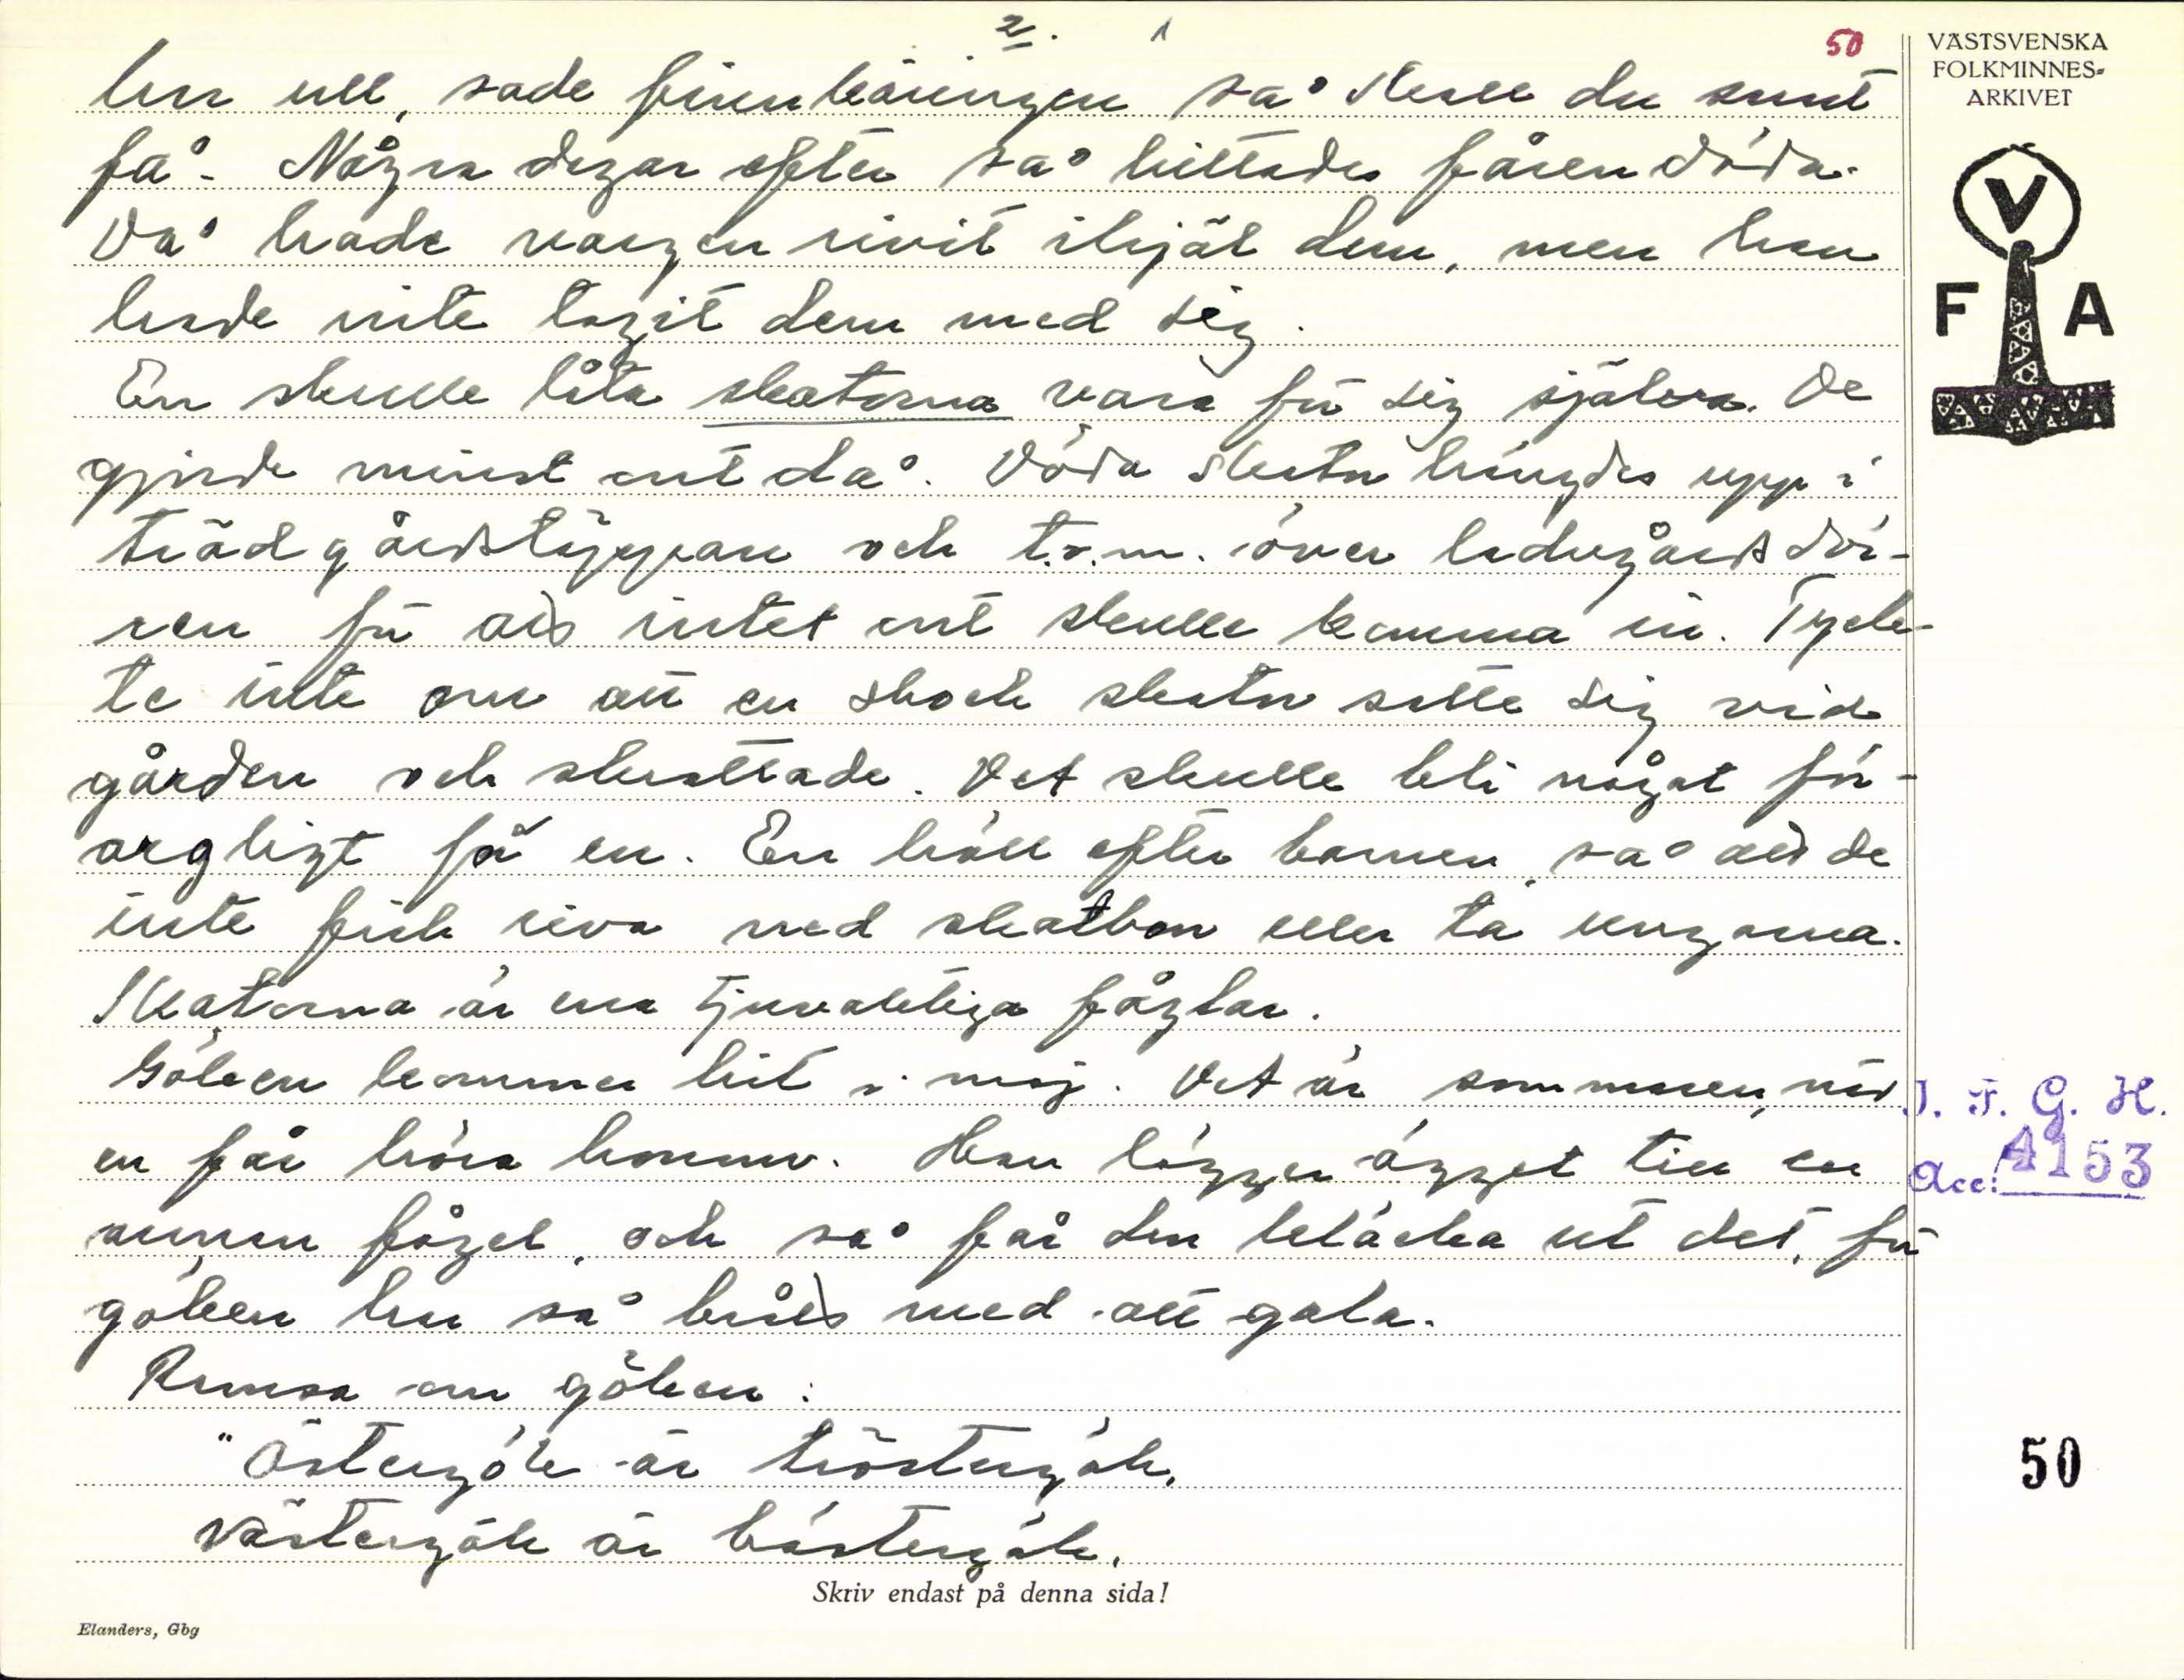 2.
50
VÄSTSVENSKA
FOLKMINNES-
ARKIVET
V
F A
han ull, sade finnkäringen så skall du snart
få. Några dagar efter så hittades fåren döda.
Då hade vargen rivit ihjäl dem, men han
hade inte tagit dem med sig.
En skulle låta skatorna vara för sig själva. De
gjorde minst ont då. Döda skator hängdes upp i
trädgårdstäppan och t.o.m. över ladugårdsdör-
ren för att intet ont skulle komma in. Tyck-
te inte om att en skock skator satte sig vid
gården och skrattade. Det skulle bli något för-
argligt för en. En höll efter barnen så att de
inte fick riva ned skatbon eller ta ungarna.
Skatorna är ena tjuvaktiga fåglar.
Göken kommer hit i maj. Det är sommaren, när
en får höra honom. Han lägger ägget till en
annan fågel, och så får den kläcka ut det, för
göken har så brått med att gala.
Ramsa om göken:
"Östergök är tröstergök,
Västergök är bästergök,
Skriv endast på denna sida!
Elanders, Gbg
I. F. G. H.
Acc: 4153
50